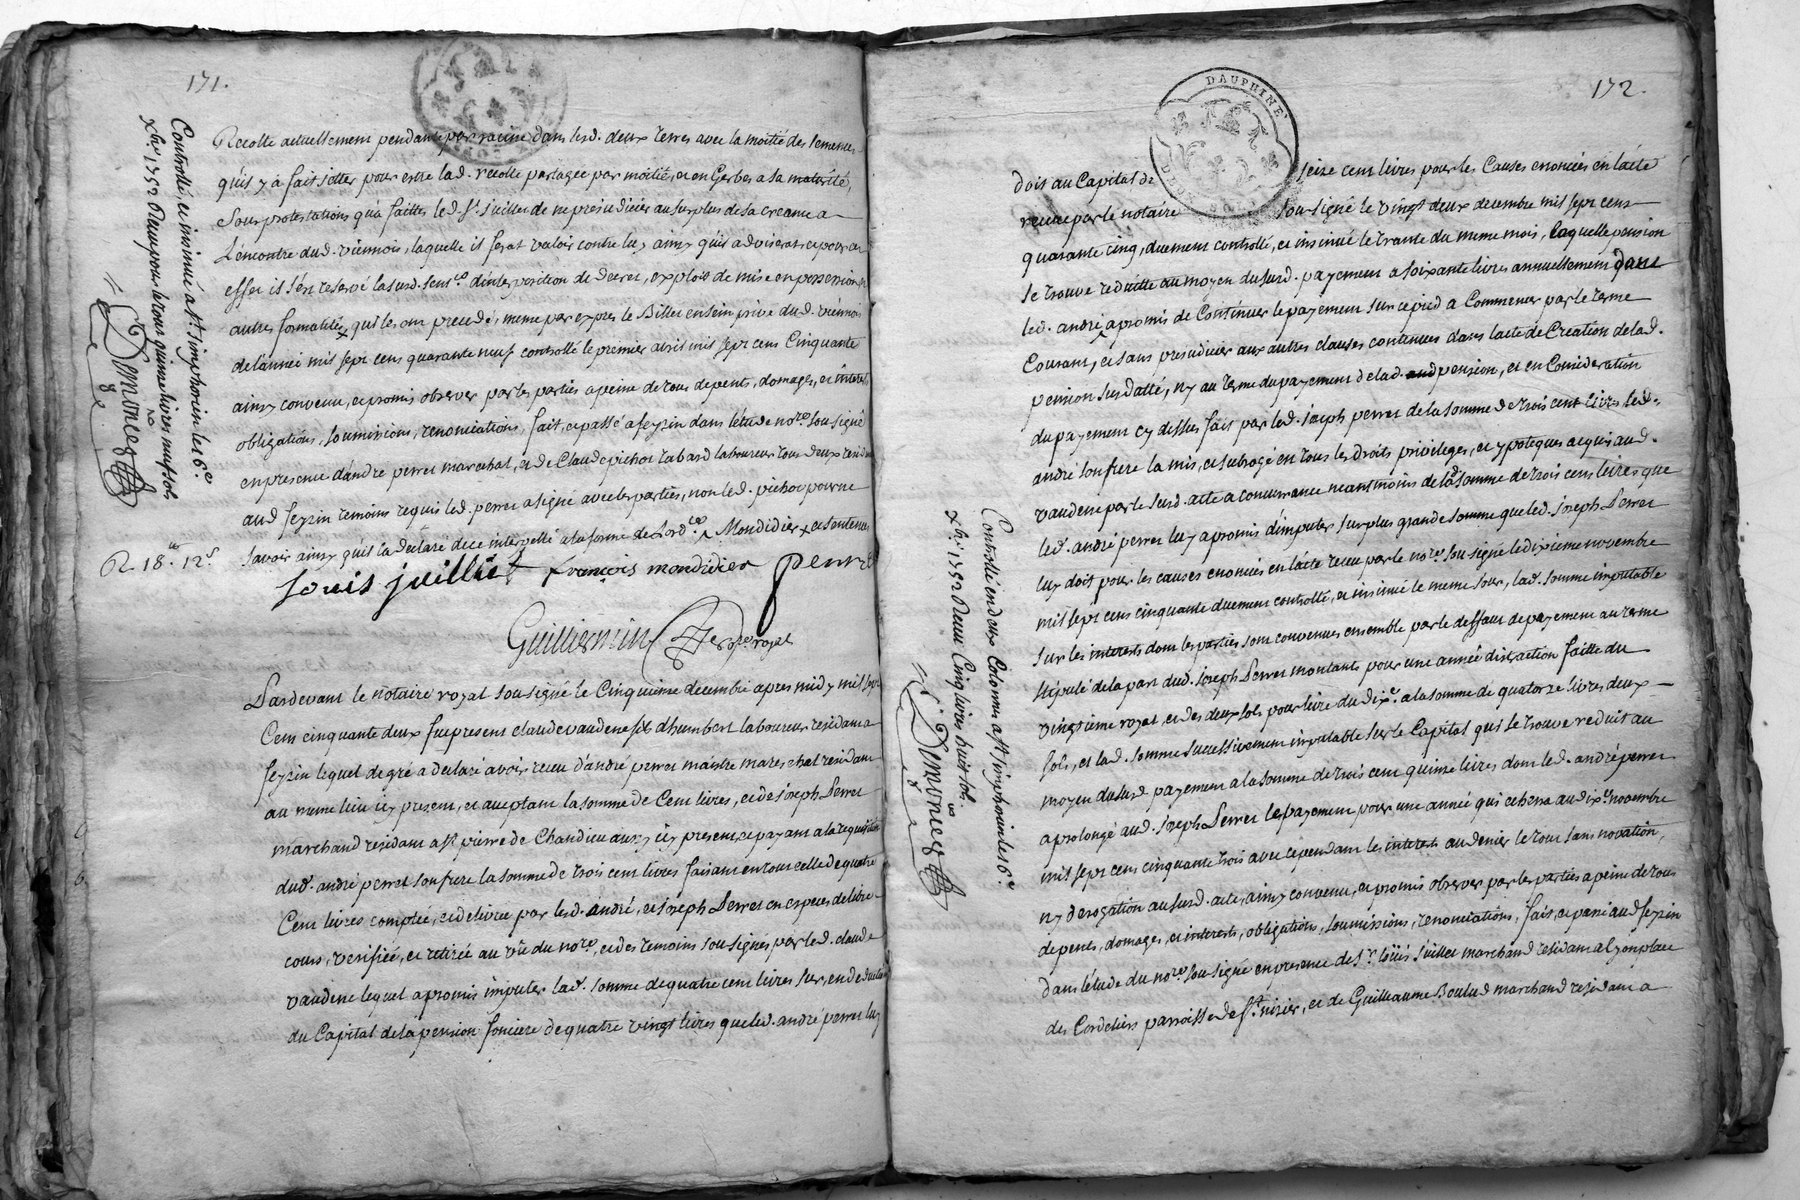 171.
Recolte actuellement pendante par racine dans lesd. deux terres avec la moitié des semences
quis y a fait jetter pour estre lad. recolte partagée par moitié, et en Gerbes a sa maturité,
sous protestations qu'a faittes led. sr. Juillet de ne prejudicier au surplus de sa creance a
L'encontre dud. viennois, laquelle il ferat valoir contre luy ainsy quis adviserat, et pour cet
effet il s'est reservé lasusd. sentce. d'interposition de decret, exploit de mise en possession et
autres formalités qui les ont precedé, meme par expres le Billet en sein privé dud. viennois
de l'année mil sept cens quarante neuf controllé le premier avril mil sept cens Cinquante
ainsy convenu, et promis observer par les parties a peine de tous depents, domages, et interets
obligations, soumissions, renonciations, fait, et passé a feyzin dans l'étude du nore. sousigné
en presence d'andré perret marechal, et de Claude pichot tabard laboureur tous deux residants
aud. feyzin temoins requis led. perret a signé avec les parties, non led. pichot pour ne
savoir ainsy quis la declaré de ce interpellé a la forme de l'ordce. Mondidier et sentences
Louis juillet françois mondidier perret
Guilliermin nore. royal
R. 18tt. 12s.
Controllé, et insinué a st. simphorien le 16e.
xbre. 1752 Receu pour le tout quinze livres neuf sols
Demonteg
Pardevant le notaire royal sousigné le Cinquieme decembre apres midy mil sept
Cens cinquante deux fut present claude vaudene fils d'humbert laboureur residant a
feyzin lequel de gré a declaré avoir receu d'andré perret maistre mareschal residant
au meme lieu icy present, et acceptant la somme de Cent livres, et de joseph Perret
marchand residant a st. pierre de Chandieu aussy icy present, et payant a la requisition
dud. andré perret son frere la somme de trois cent livres faisant en tout celle de quatre
Cent livres comptée, et delivrée par lesd. andré, et joseph Perret en especes de libre
cours, verifiée, et retirée au vû du nore. et des temoins sousignés par led. claude
vaudene lequel a promis imputer lad. somme de quatre cent livres sur, en deduction
du Capital de la pension fonciere de quatre vingt livres que led. andré perret luy
172.
DAUPHINE
doit au Capital de seize cent livres pour les Causes enoncées en l'acte
receu par le notaire sousigné le vingt deux decembre mil sept cens
quarante cinq, duement controllé, et insinué le trante du meme mois, laquelle pension
se trouve reduitte au moyen du susd. payement a soixante livres annuellement dont
led. andré a promis de Continuer le payement sur ce pied a Commencer par le terme
Courant, et sans prejudicier aux autres clauses contenues dans l'acte de Creation de lad.
pension susdatté, ny au terme du payement de lad. pension, et en Consideration
du payement cy dessus fait par led. joseph perret de la somme de trois cent livres led.
andré son frere la mis, et subrogé en tous les droits privileges, et ypoteques acquis aud.
vaudene par le susd. acte a concurrance neantmoins de lad. somme de trois cent livres que
led. andré perret luy a promis d'imputer sur plus grande somme que led. joseph Perret
luy doit pour les causes enoncées en l'acte receu par le nore. sousigné le dixieme novembre
mil sept cens cinquante duement controllé, et insinué le meme jour, lad. somme imputable
sur les interets dont les parties sont convenues ensemble par le deffaut de payement au terme
stipulé de la part dud. joseph Perret montants pour une année distraction faitte du
vingtieme royal, et des deux sols pour livre du dixe. a la somme de quatorze livres deux
sols, et lad. somme successivement imputable sur le Capital qui se trouve reduit au
moyen du susd. payement a la somme de trois cent quinze livres dont led. andré perret
a prolongé aud. joseph Perret le payement pour une année qui echerra au dixe. novembre
mil sept cens cinquante trois avec cependant les interets au denier le tout sans novation,
ny derogation au susd. acte, ainsy convenu, et promis observer par les parties a peine de tous
depents, domages, et interets, obligations, soumissions, renonciations, fait, et passé aud. feyzin
dans l'étude du nore. sousigné en presence de sr. loüis Juillet marchand residant a lyon place
des Cordeliers parroisse de st. nizier, et de Guilleaume Boulud marchand residant a
Controllé en deux Colomnes a st. simphorien le 16e.
xbre. 1752 Receu Cinq livres huit sols.
Demonteg